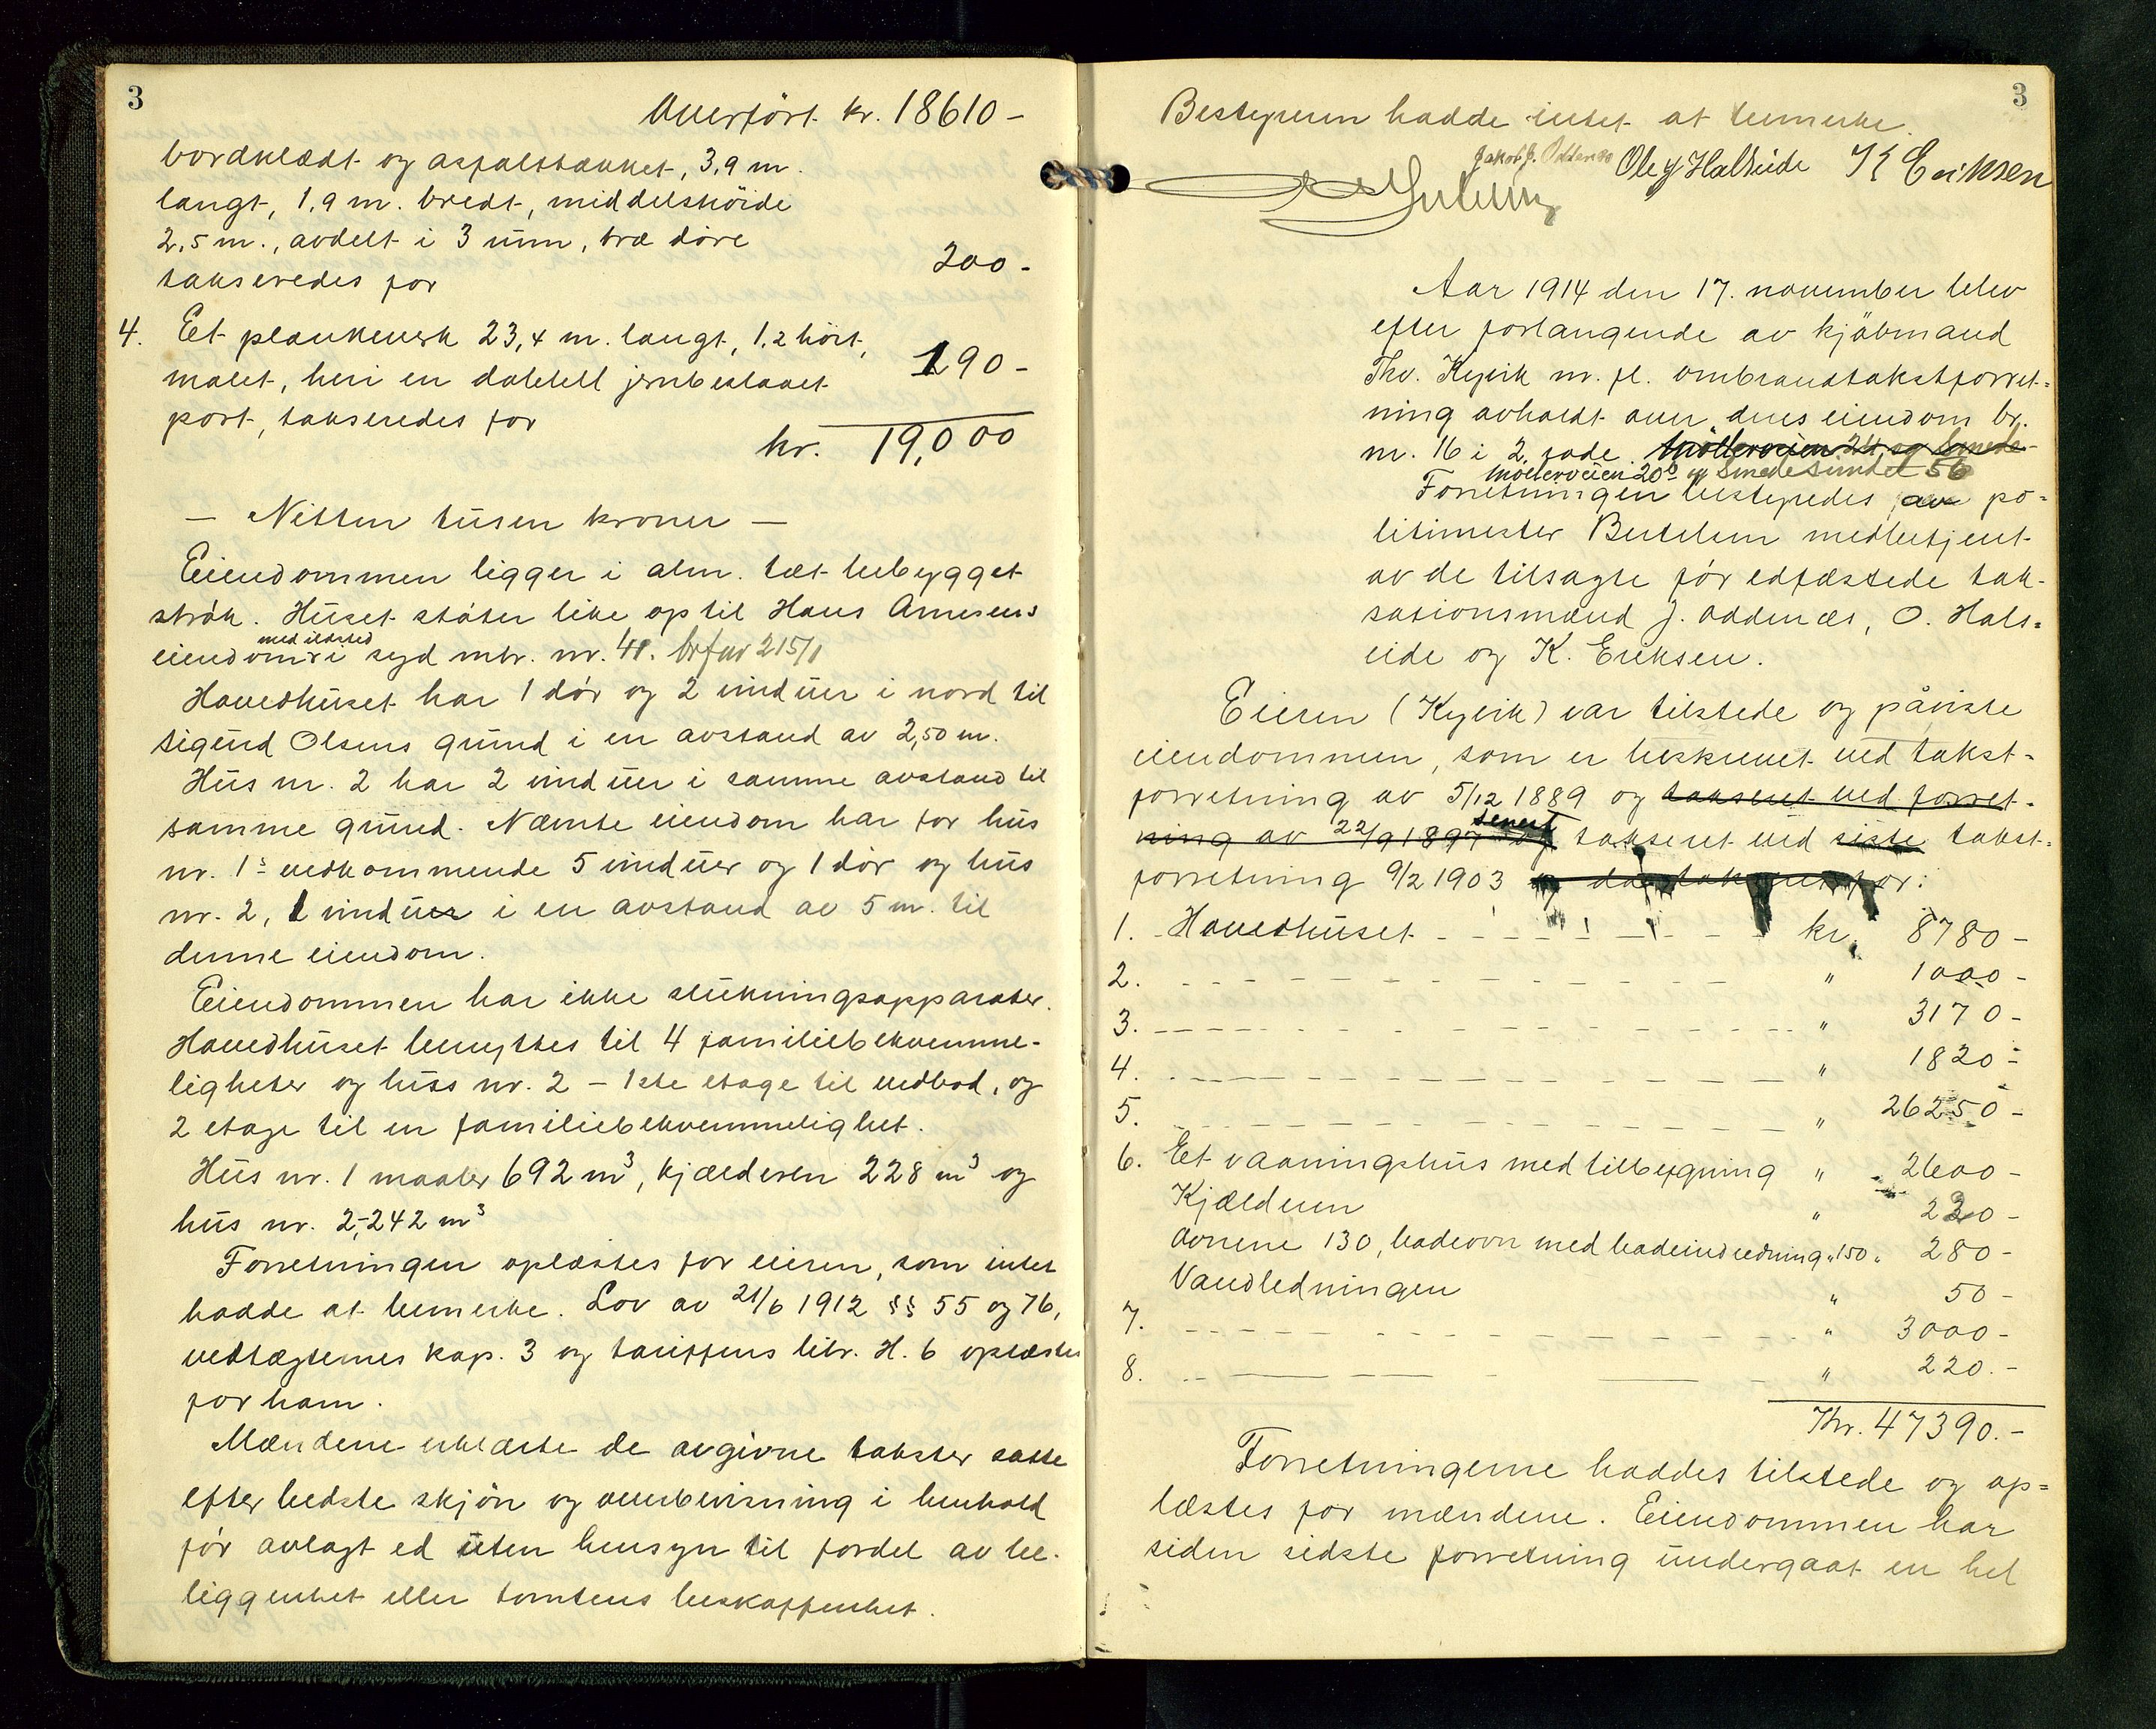 3
Overført kr. 18610 -
bordklædt og asfalttækket, 3,9 m.
langt, 1,9 m. bredt, middelshöide
2,5 m., avdelt i 3 rum, træ döre
takseredes for 200 -
4. Et plankeverk 23,4 m. langt, 1,2 höit,
malet, heri en dobbelt jernbeslaaet 190 -
port, takseredes for
kr. 19,000
- Nitten tusen kroner -
Eiendommen ligger i alm. tæt bebygget
strök. Huset stöter like op til Hans Arnesens
med ildsted
eiendom i syd mtr. nr. 41. brfnr 215/1
Hovedhuset har 1 dör og 2 vinduer i nord til
Sigurd Olsens grund i en avstand av 2,50 m.
Hus nr. 2 har 2 vinduer i samme avstand til
samme grund. Nævnte eiendom har for hus
nr. 1s vedkommende 5 vinduer og 1 dör og hus
nr. 2, 1 vinduer i en avstand av 5 m. til
denne eiendom.
Eiendommen har ikke slukningsapparater.
Hovedhuset benyttes til 4 familiebekvemme-
ligheter og huss nr. 2 - 1ste etage til vedbod, og
2 etage til en familiebekvemmelighet.
Hus nr. 1 maaler 692 m³, kjælderen 228 m³ og
hus nr. 2,-242 m³
Forretningen oplæstes for eieren, som intet
hadde at bemerke. Lov av 21/6 1912 §§ 55 og 76,
vedtægternes kap. 3 og tariffens litr. H. 6 oplæstes
for ham.
Mændene erklærte de avgivne takster satte
efter bedste skjön og overbevisning i henhold
för avlagt ed uten hensyn til fordel av be-
liggenhet eller tomtens beskaffenhet.
3
Bestyreren hadde intet at bemerke.
Jakob J. Oddenes Ole J Halseide K Eriksen
Aar 1914 den 17. november blev
efter forlangende av kjöbmand
Thv. Kyvik m. fl. ombrandtakstforret-
ning avholdt over deres eiendom br.
nr. 16 i 2. rode. Mölleveien 24 og Smede-
Mölleveien 20b og Smedesundet 56
Forretningen bestyredes av po-
litimester Bertelsen medbetjent
av de tilsagte för edfæstede tak-
sationsmænd J. Oddenæs, O. Hals-
eide og K. Eriksen.
Eieren (Kyvik) var tilstede og påviste
eiendommen, som er beskrevet ved takst-
forretning av 5/12 1889 og takseret ved forret-
senest
ning av 22/9 1897 og takseret ved siste takst-
forretning 9/2 1903 og da takseret for:
1. Hovedhuset - - - - - - kr. 8780 -
2. - - - - - - - - - " 1000 -
3. - - - - - - - - - " 3170 -
4. - - - - - - - - - " 1820 -
5. - - - - - - - - - " 26250 -
6. Et vaaningshus med tilbygning " 2600 -
Kjælderen " 220 -
Ovnene 130, badeovn med badeindredning " 150 " 280 -
Vandledningen " 50 -
7. - - - - - - - - - " 3000 -
8. - - - - - - - - - " 220. -
Kr. 47390. -
Forretningerne haddes tilstede og op-
læstes for mændene. Eiendommen har
siden sidste forretning undergaat en hel